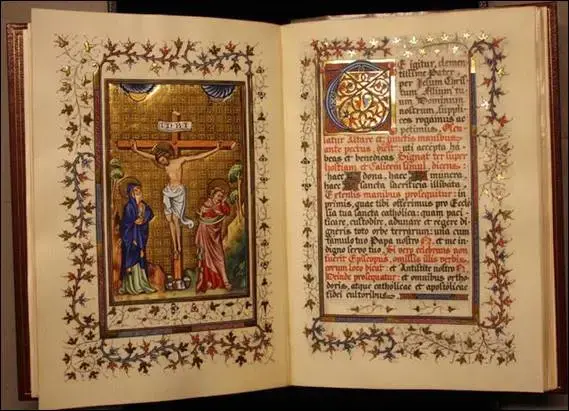 INRI
TE igitur, clemen
tissime Pater,
per Jesum Chris
tum, Filium tu
um Dominum
nostrum, supplic
es rogamus ac
petimus, Oscu
latur Altare et junctis manibus
ante pectus, dicit: uti accepta ha
beas et benedicas Signat ter super
hostiam et Calicem simul, dicens:
haec ✠ dona, haec ✠ munera,
haec ✠ sancta sacrificia illibata,
Extensis manibus prosequitur: in
primis, quae tibi offerimus pro Eccle
sia tua sancta catholica: quam paci
ficare, custodire, adunare et regere di
gneris toto orbe terrarum: una cum
famulo tuo Papa nostro N. et me in
digno servo tuo, Si vero celebrans non
fuerit Episcopus, omissis illis verbis,
eorum loco dicit: et Antistite nostro N.
Deinde prosequitur: et omnibus ortho
doxis, atque catholicae et apostolicae
fidei cultoribus.